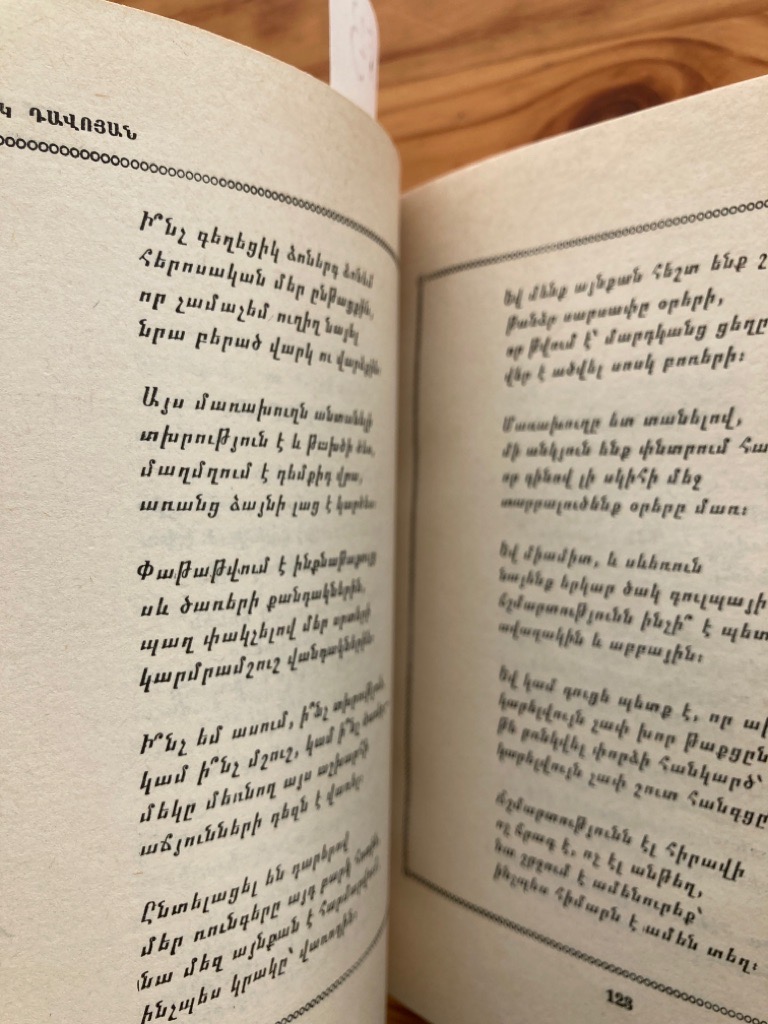 Կ ԴԱՎՈՅԱՆ
Ի՞նչ գեղեցիկ ձոներգ ձոնեմ
հերոսական մեր ընթացքին,
որ չամաչեմ ուղիղ նայել
նրա բերած վարկ ու վարքին:
Այս մառախուղն անտանելի
տխրություն է և թախծի ծես,
մաղմղում է դեմքիդ վրա,
առանց ձայնի լաց է կարծես:
Փաթաթվում է ինքնաթաթաց
սև ծառերի քանդակներին,
պաղ փակչելով մեր սրտերի
կարմրամշուշ վանդակներին:
Ի՞նչ եմ ասում, ի՞նչ տխրություն,
կամ ի՞նչ մշուշ, կամ ի՞նչ
մեկը մեռնող այս աշխարհի
աճյունների դեզն է վառել:
Ընտելացել են դարերով
մեր ռունգերը այդ բարկ հոտին,
նա մեզ այնքան է հարմարված
ինչպես կրակը՝ վառողին:
Եվ մենք այնքան հեշտ ենք շ
թանձր սարսափը օրերի,
որ թվում է՝ մարդկանց ցեղը
վեր է ածվել սոսկ բոռերի:
Մառախուղը ետ տանելով,
մի անկյուն ենք փնտրում հա
որ գինով լի սկիհի մեջ
տարրալուծենք օրերը մառ:
Եվ միամիտ, և սևեռուն
նայենք երկար ծակ գուլպայի
ճշմարտությունն ինչի՞ է պետ
ավազակին և աբբային:
Եվ կամ գուցե պետք է, որ ախ
կարելվույն չափ խոր թաքցըն
թե բռնկվել փորձի հանկարծ՝
կարելվույն չափ շուտ հանգցը
Ճշմարտությունն էլ հիրավի
ոչ ճրագ է, ոչ էլ անթեղ,
նա շրջում է ամենուրեք՝
ինչպես հիմարն է ամեն տեղ:
123